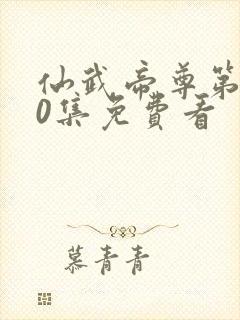 仙武帝尊第
0集免费看
慕青青